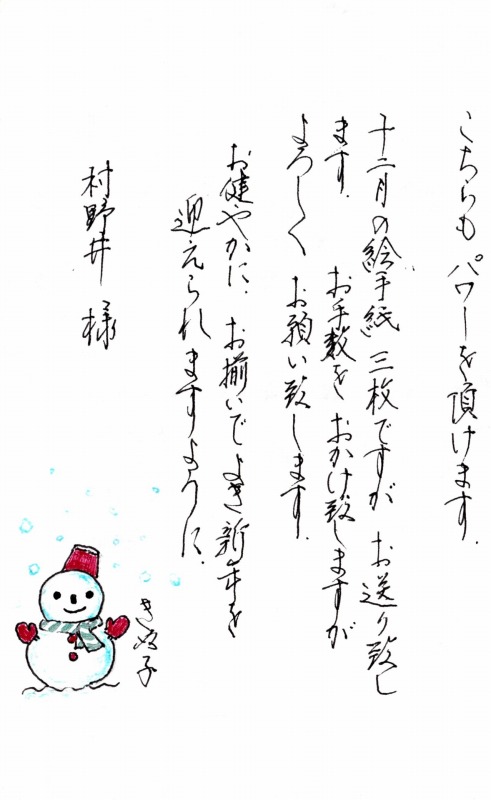 こちらもパワーを頂けます.
十二月の絵手紙三枚ですが お送り致し
ます. お手数をおかけ致しますが
よろしく お願い致します.
お健やかに. お揃いでよき新年を
迎えられますように.
村野井 様
きぬ子